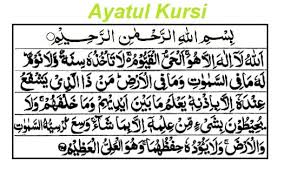 Ayatul Kursi
بِسْمِ اللهِ الرَّحْمٰنِ الرَّحِيْمِ
اَللهُ لَاۤ اِلٰهَ اِلَّا هُوَ اَلْحَیُّ الْقَیُّوْمُ لَا تَاْخُذُهٗ سِنَةٌ وَّلَا نَوْمٌ
لَهٗ مَا فِی السَّمٰوٰتِ وَمَا فِی الْاَرْضِ مَنْ ذَا الَّذِیْ یَشْفَعُ
عِنْدَهٗۤ اِلَّا بِاِذْنِهٖ یَعْلَمُ مَا بَیْنَ اَیْدِیْهِمْ وَمَا خَلْفَهُمْ وَلَا
یُحِیْطُوْنَ بِشَیْءٍ مِّنْ عِلْمِهٖۤ اِلَّا بِمَا شَآءَ وَسِعَ كُرْسِیُّهُ السَّمٰوٰتِ
وَالْاَرْضَ وَلَا یَـُٔوْدُهٗ حِفْظُهُمَا وَهُوَ الْعَلِیُّ الْعَظِیْمُ